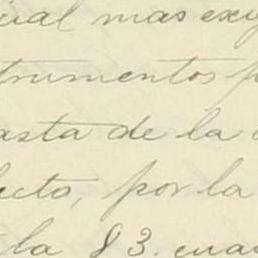 cial mas exig
trumentos p
asta de la
lecto, por la
la 83. cuar